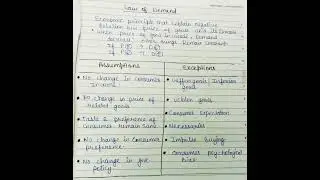 Law of Demand
Economic principle that explain negative
Relation b/w price of good and its Demand
• When price of good increases, Demand
decreases, other things Remain Constant
If P D
If P D
Assumptions
Exceptions
• No change in Consumer
Income
• Giffen goods/Inferior
good
• No change in price of
related goods
• Veblen goods
• Consumer Expectation
• Taste & preference of
Consumer Remain Same
• Necessaries
• No change in Consumer
preference.
• Impulse Buying
• No change in Gov
policy
• Consumer psychological
bias